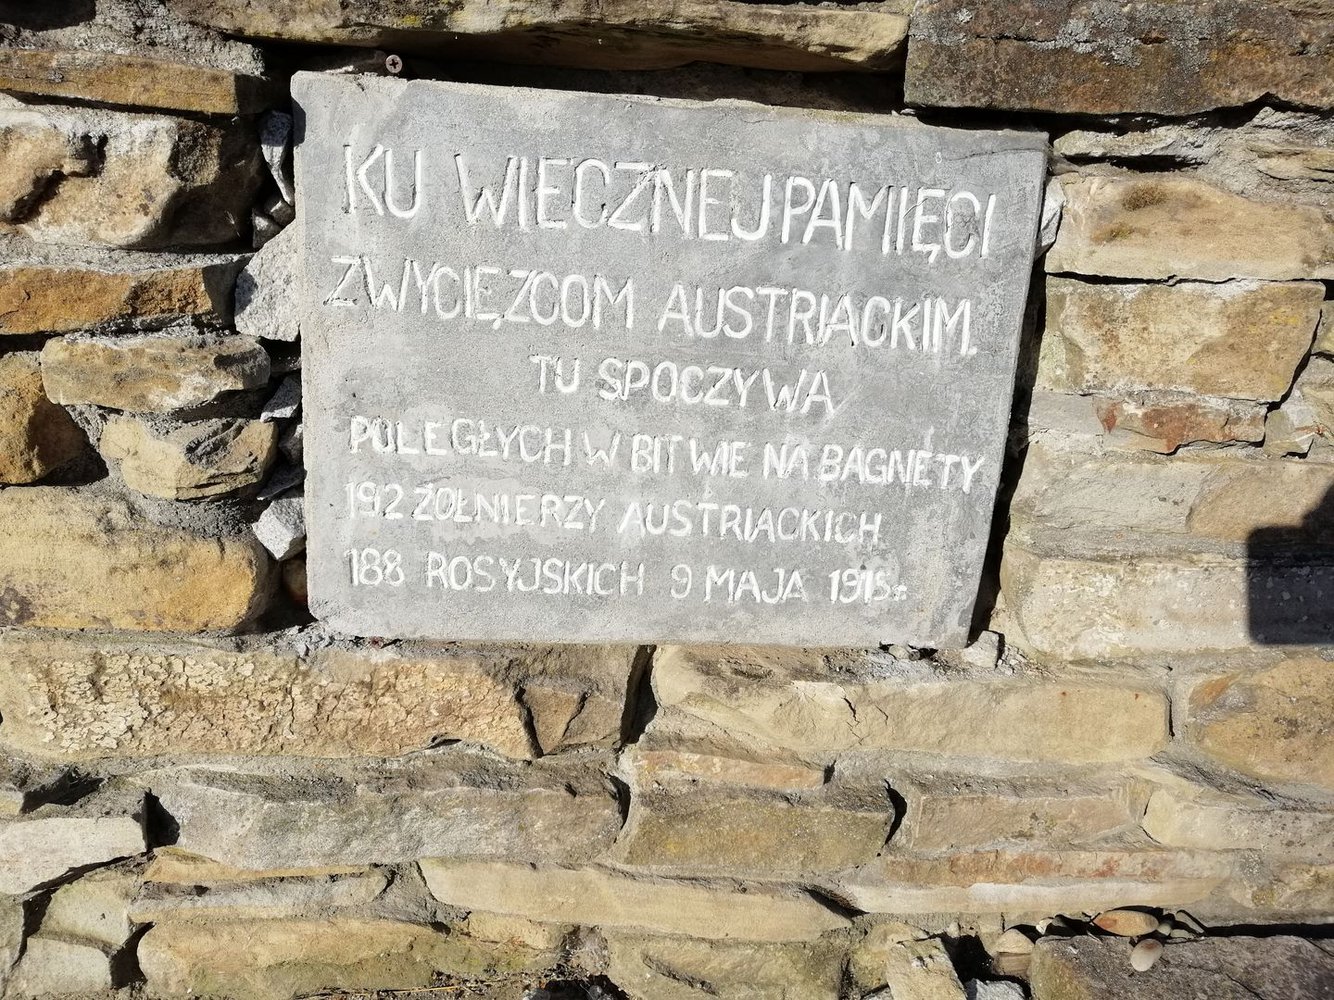 KU WIECZNEJ PAMIĘCI
ZWYCIĘZCOM AUSTRIACKIM.
TU SPOCZYWA
POLEGŁYCH W BITWIE NA BAGNETY
192 ŻOŁNIERZY AUSTRIACKICH
188 ROSYJSKICH 9 MAJA 1915r.